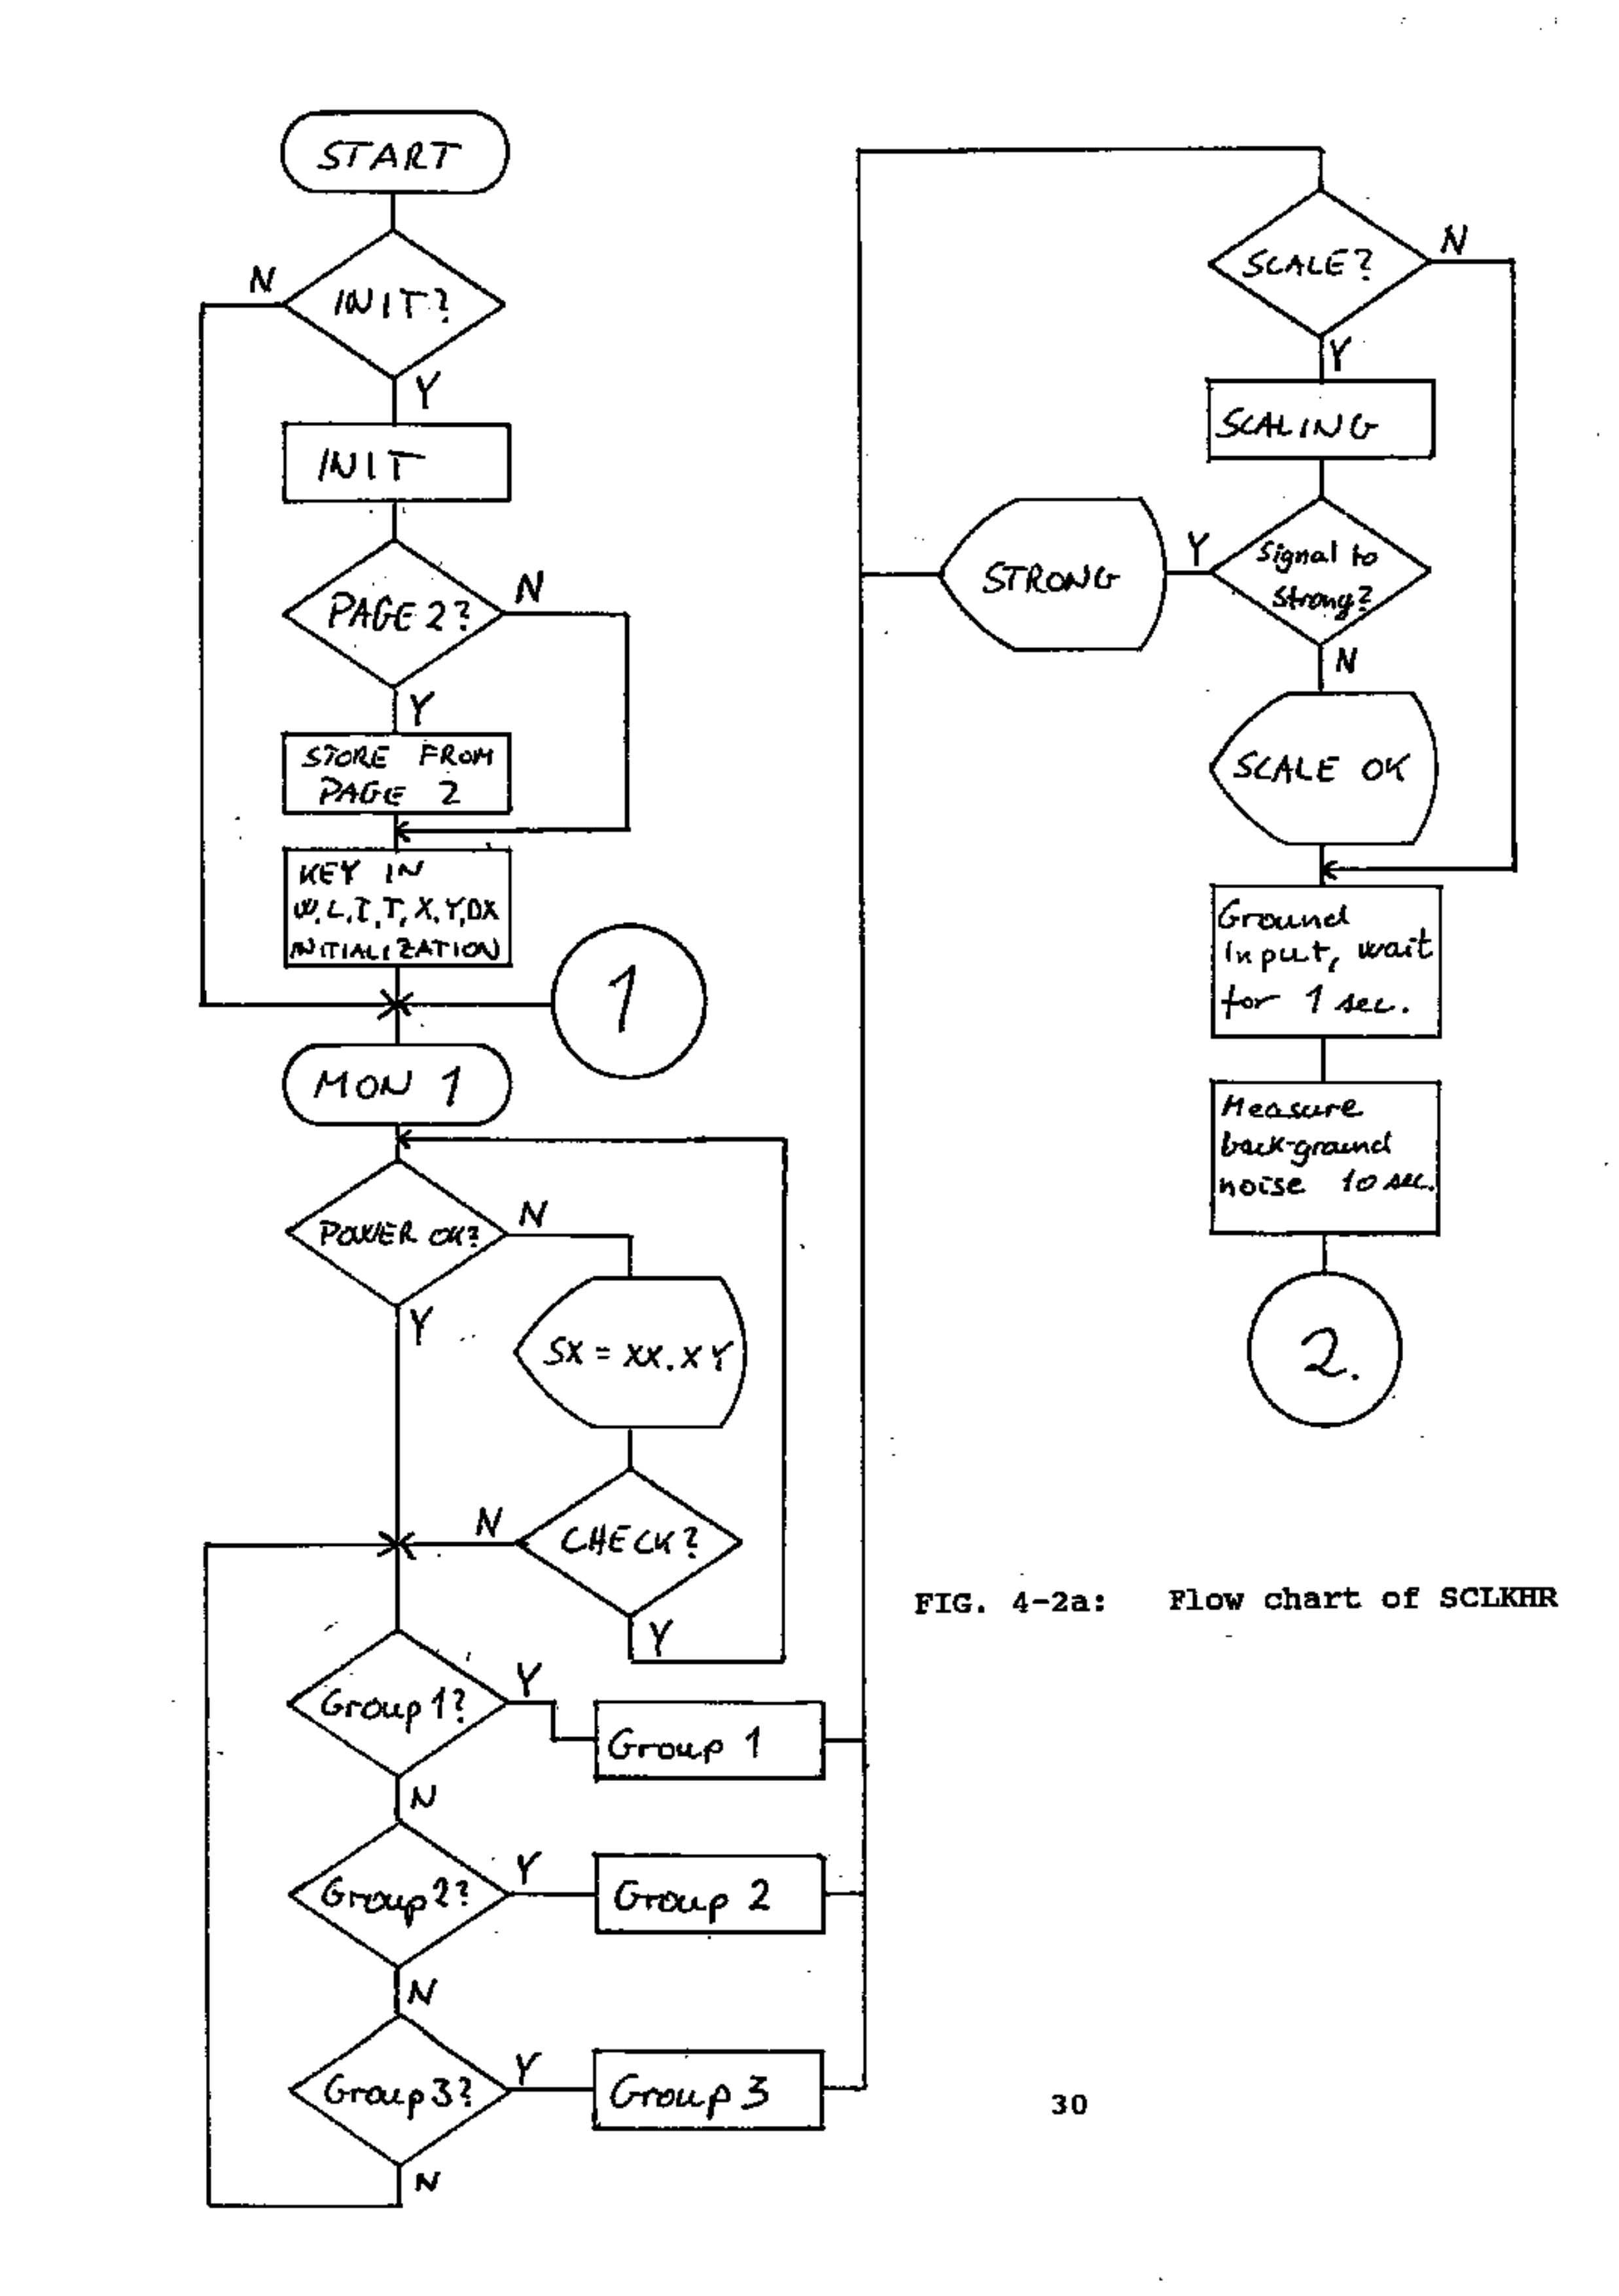 START
INIT?
N
Y
INIT
PAGE 2?
N
Y
STORE FROM
PAGE 2
KEY IN
W,L,I,T,X,Y,DX
INITIALIZATION
1
MON 1
POWER OK?
N
Y
SX = XX.XY
CHECK?
N
Y
Group 1?
Y
Group 1
N
Group 2?
Y
Group 2
N
Group 3?
Y
Group 3
N
SCALE?
N
Y
SCALING
Signal to
Strong?
Y
STRONG
N
SCALE OK
Ground
Input, wait
for 1 sec.
Measure
back-ground
noise 10 sec.
2.
FIG. 4-2a: Flow chart of SCLKHR
30